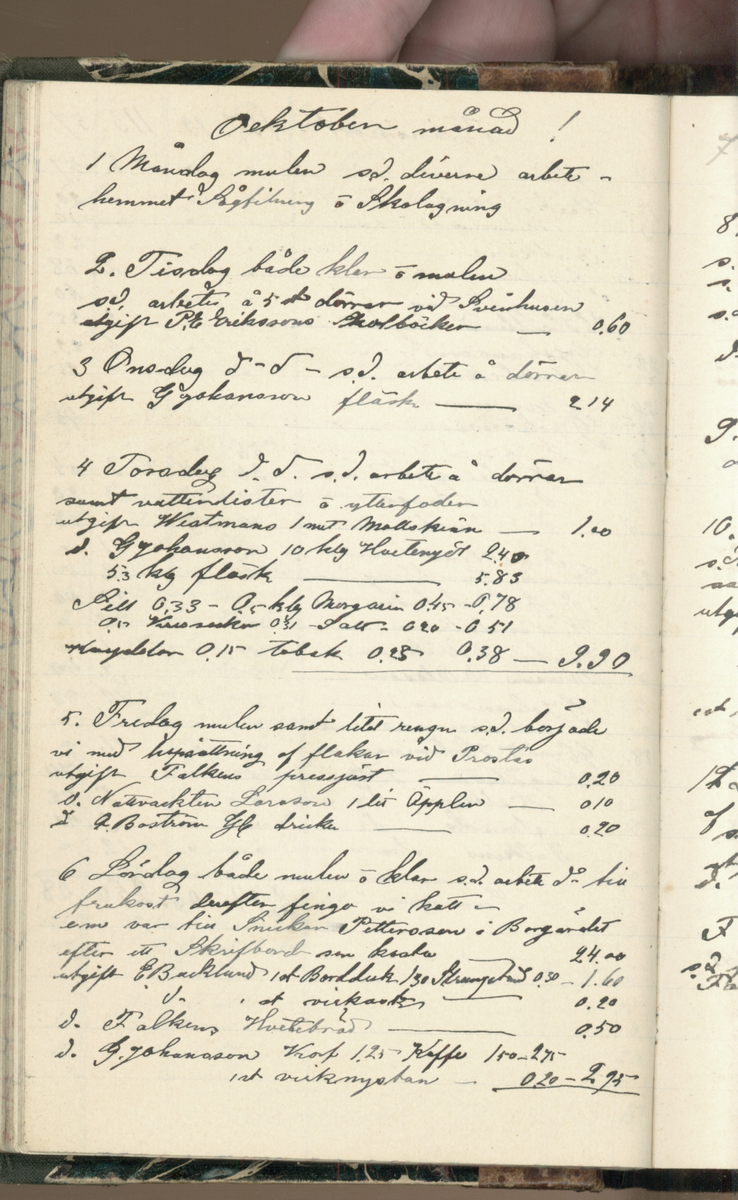 Oektober månad !
1 Måndag mulen s.d. diverse arbete -
hemmet Sågfilning o Skolagning
2. Tisdag både klar o mulen
s.d. arbete å 5 st dörrar vid Svinhusen
utgift P.E. Erikssons Skolböcker — 0.60
3 Onsdag d - d - s.d. arbete å dörrar
utgift G Johansson fläsk — 2.14
4 Torsdag d. d. s.d. arbete å dörrar
samt vattenlister o ytterfoder
utgift Westmans 1 met Mollskin — 1.00
d. G Johansson 10 klg Hvetemjöl 2.40
5.3 klg fläsk — 5.83
Sill 0.33 - 0.5 klg Margarin 0.45 - 0.78
0.31 - Salt - 0.20 - 0.51
0.15 tobak 0.23 0.38 — 9.90
5. Fredag mulen samt litet rengn s.d. började
vi med uppsättning af flakar vid Prostas
utgift Falkens pressjäst — 0.20
d. Nattvackten Larsson 1 lit Äpplen — 0.10
d A. Boström dricka — 0.20
6 Lördag både mulen o klar s.d. arbete d° till
frukost derefter fingo vi
om var till Snickar Pettersson i Borgärdet
efter ett Skrifbord som kosta 24.00
utgift E Backlund 1 st Bordduk 1.30 0.30 - 1.60
d. 1 st 0.20
d. Falkens Hvetebröd — 0.50
d. G. Johansson Korf 1.25 Kaffe 1.50 - 2.75
1 st virknystan — 0.20 - 2.95